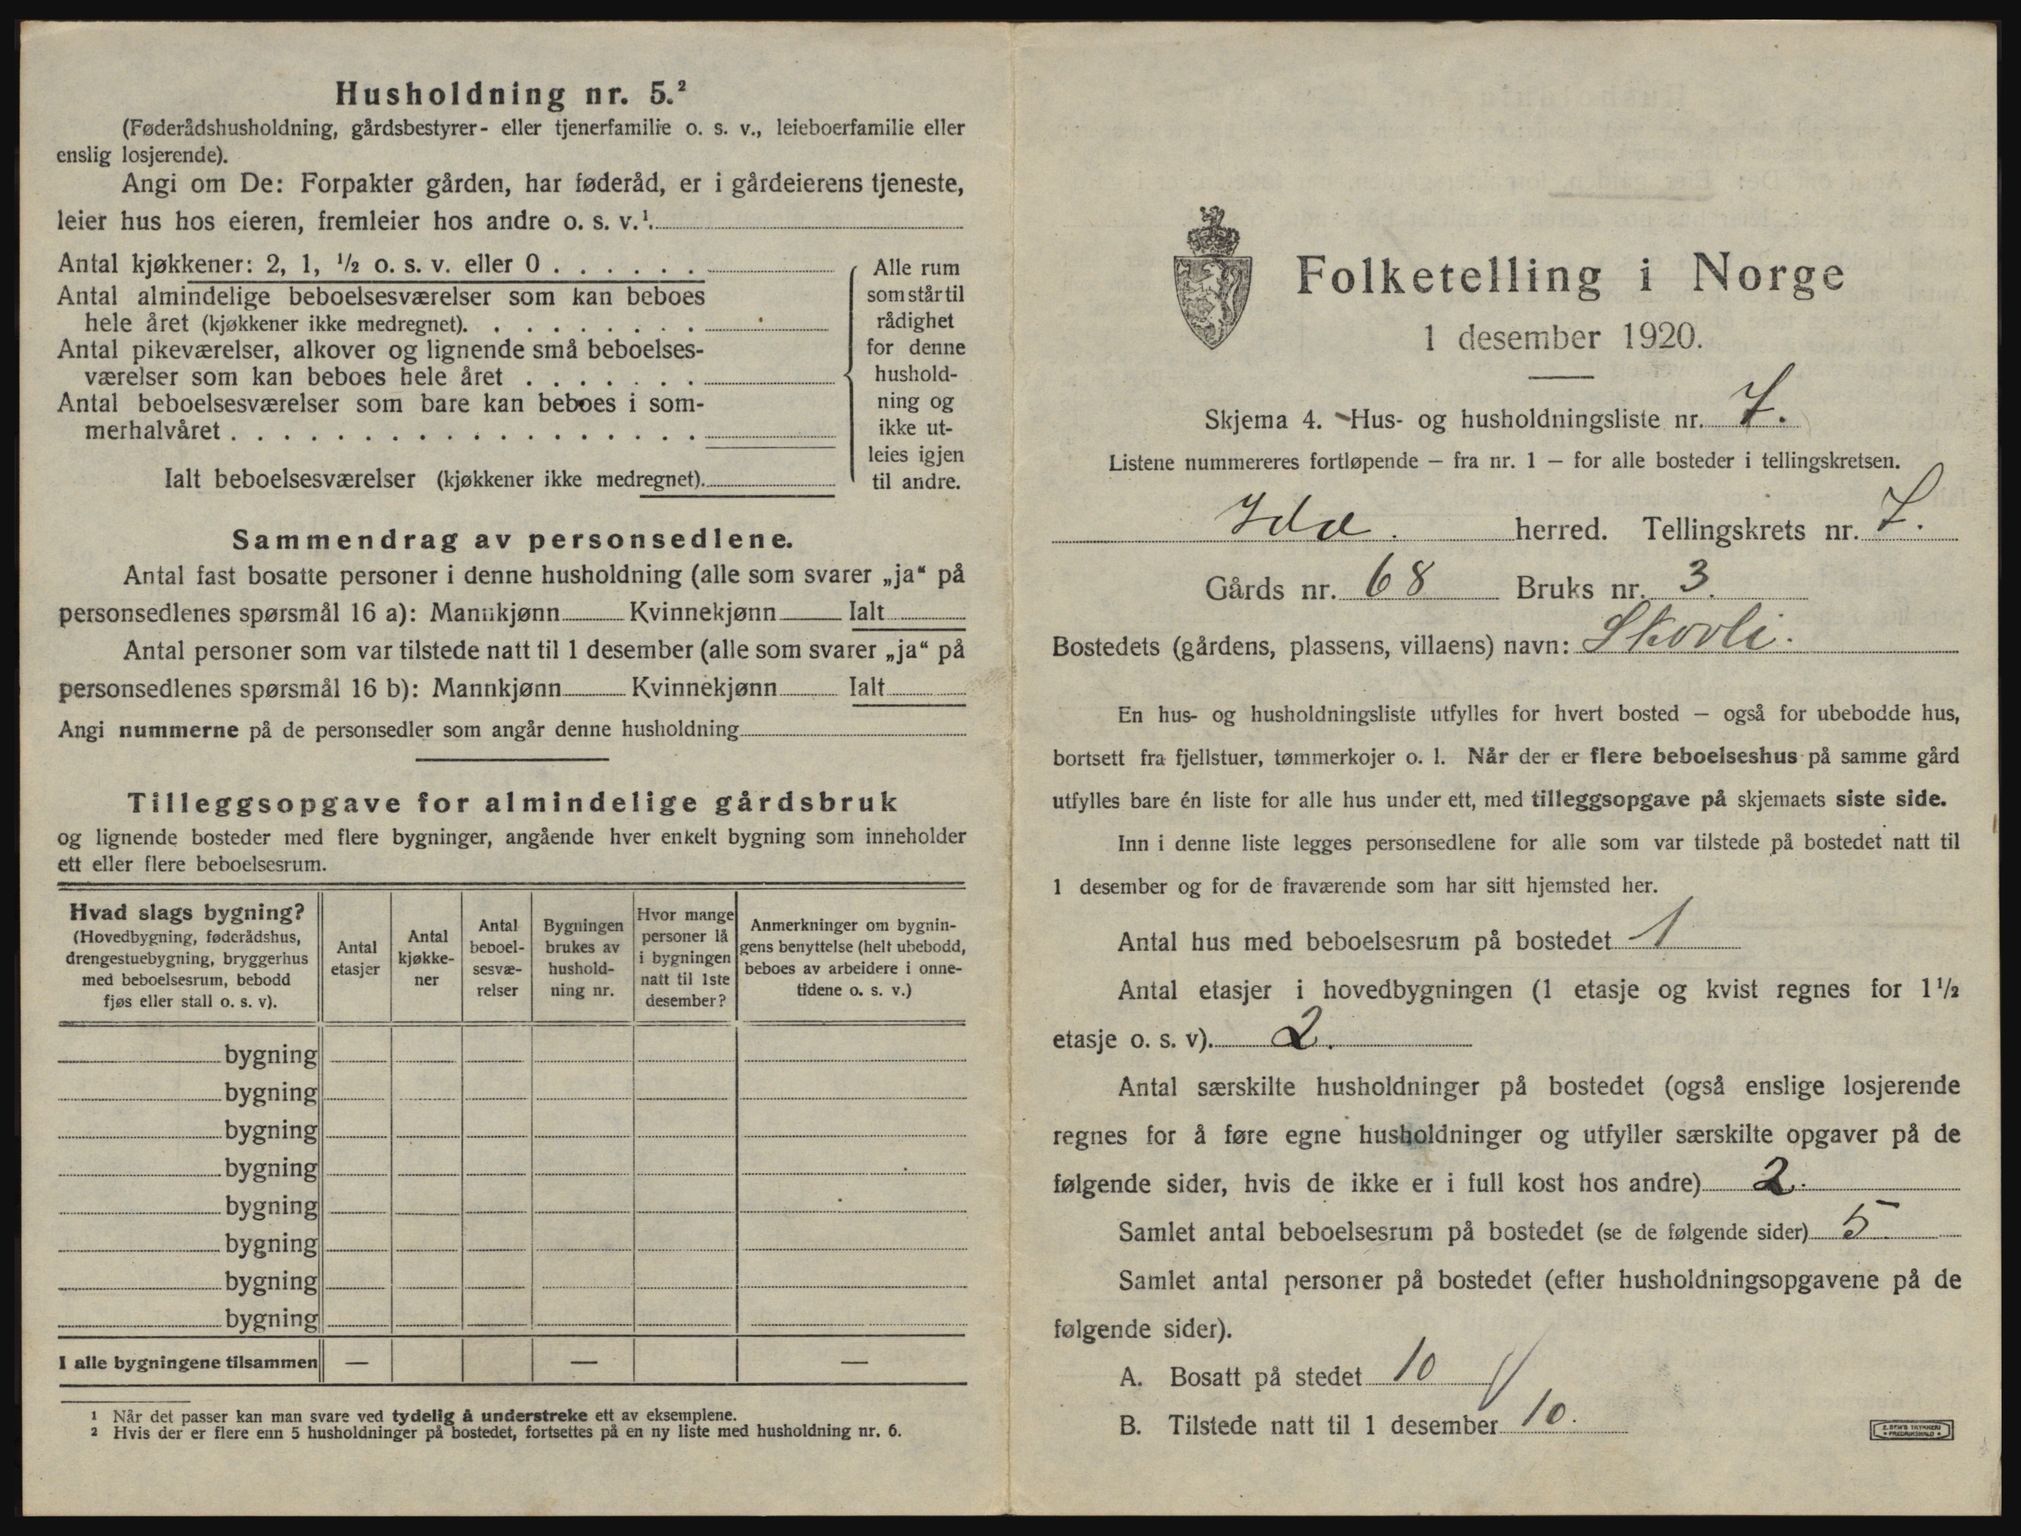 Husholdning nr. 5.²
(Føderådshusholdning, gårdsbestyrer- eller tjenerfamilie o. s. v., leieboerfamilie eller
enslig losjerende).
Angi om De: Forpakter gården, har føderåd, er i gårdeierens tjeneste,
leier hus hos eieren, fremleier hos andre o. s. v.¹.
Antal kjøkkener: 2, 1, ½ o. s. v. eller 0 . . . . . .
Antal almindelige beboelsesværelser som kan beboes
hele året (kjøkkener ikke medregnet). . . . . . . . .
Antal pikeværelser, alkover og lignende små beboelses-
værelser som kan beboes hele året . . . . . . .
Antal beboelsesværelser som bare kan beboes i som-
merhalvåret . . . . . . . . . . . . . . . . . .
Ialt beboelsesværelser (kjøkkener ikke medregnet).
Alle rum
som står til
rådighet
for denne
hushold-
ning og
ikke ut-
leies igjen
til andre.
Sammendrag av personsedlene.
Antal fast bosatte personer i denne husholdning (alle som svarer „ja“ på
personsedlenes spørsmål 16 a): Mannkjønn Kvinnekjønn Ialt
Antal personer som var tilstede natt til 1 desember (alle som svarer „ja“ på
personsedlenes spørsmål 16 b): Mannkjønn Kvinnekjønn Ialt
Angi nummerne på de personsedler som angår denne husholdning
Tilleggsopgave for almindelige gårdsbruk
og lignende bosteder med flere bygninger, angående hver enkelt bygning som inneholder
ett eller flere beboelsesrum.
Hvad slags bygning?
(Hovedbygning, føderådshus,
drengestuebygning, bryggerhus
med beboelsesrum, bebodd
fjøs eller stall o. s. v).
Antal
etasjer
Antal
kjøkke-
ner
Antal
beboel-
sesvæ-
relser
Bygningen
brukes av
hushold-
ning nr.
Hvor mange
personer lå
i bygningen
natt til 1ste
desember?
Anmerkninger om bygnin-
gens benyttelse (helt ubebodd,
beboes av arbeidere i onne-
tidene o. s. v.)
bygning
bygning
bygning
bygning
bygning
bygning
bygning
bygning
I alle bygningene tilsammen — — —
¹ Når det passer kan man svare ved tydelig å understreke ett av eksemplene.
² Hvis der er flere enn 5 husholdninger på bostedet, fortsettes på en ny liste med husholdning nr. 6.
Folketelling i Norge
1 desember 1920.
Skjema 4. Hus- og husholdningsliste nr. 7.
Listene nummereres fortløpende – fra nr. 1 – for alle bosteder i tellingskretsen.
Idd. herred. Tellingskrets nr. 7.
Gårds nr. 68 Bruks nr. 3.
Bostedets (gårdens, plassens, villaens) navn: Skovli.
En hus- og husholdningsliste utfylles for hvert bosted – også for ubebodde hus,
bortsett fra fjellstuer, tømmerkojer o. l. Når der er flere beboelseshus på samme gård
utfylles bare én liste for alle hus under ett, med tilleggsopgave på skjemaets siste side.
Inn i denne liste legges personsedlene for alle som var tilstede på bostedet natt til
1 desember og for de fraværende som har sitt hjemsted her.
Antal hus med beboelsesrum på bostedet 1
Antal etasjer i hovedbygningen (1 etasje og kvist regnes for 1½
etasje o. s. v). 2.
Antal særskilte husholdninger på bostedet (også enslige losjerende
regnes for å føre egne husholdninger og utfyller særskilte opgaver på de
følgende sider, hvis de ikke er i full kost hos andre) 2.
Samlet antal beboelsesrum på bostedet (se de følgende sider) 5
Samlet antal personer på bostedet (efter husholdningsopgavene på de
følgende sider).
A. Bosatt på stedet 10
B. Tilstede natt til 1 desember 10.